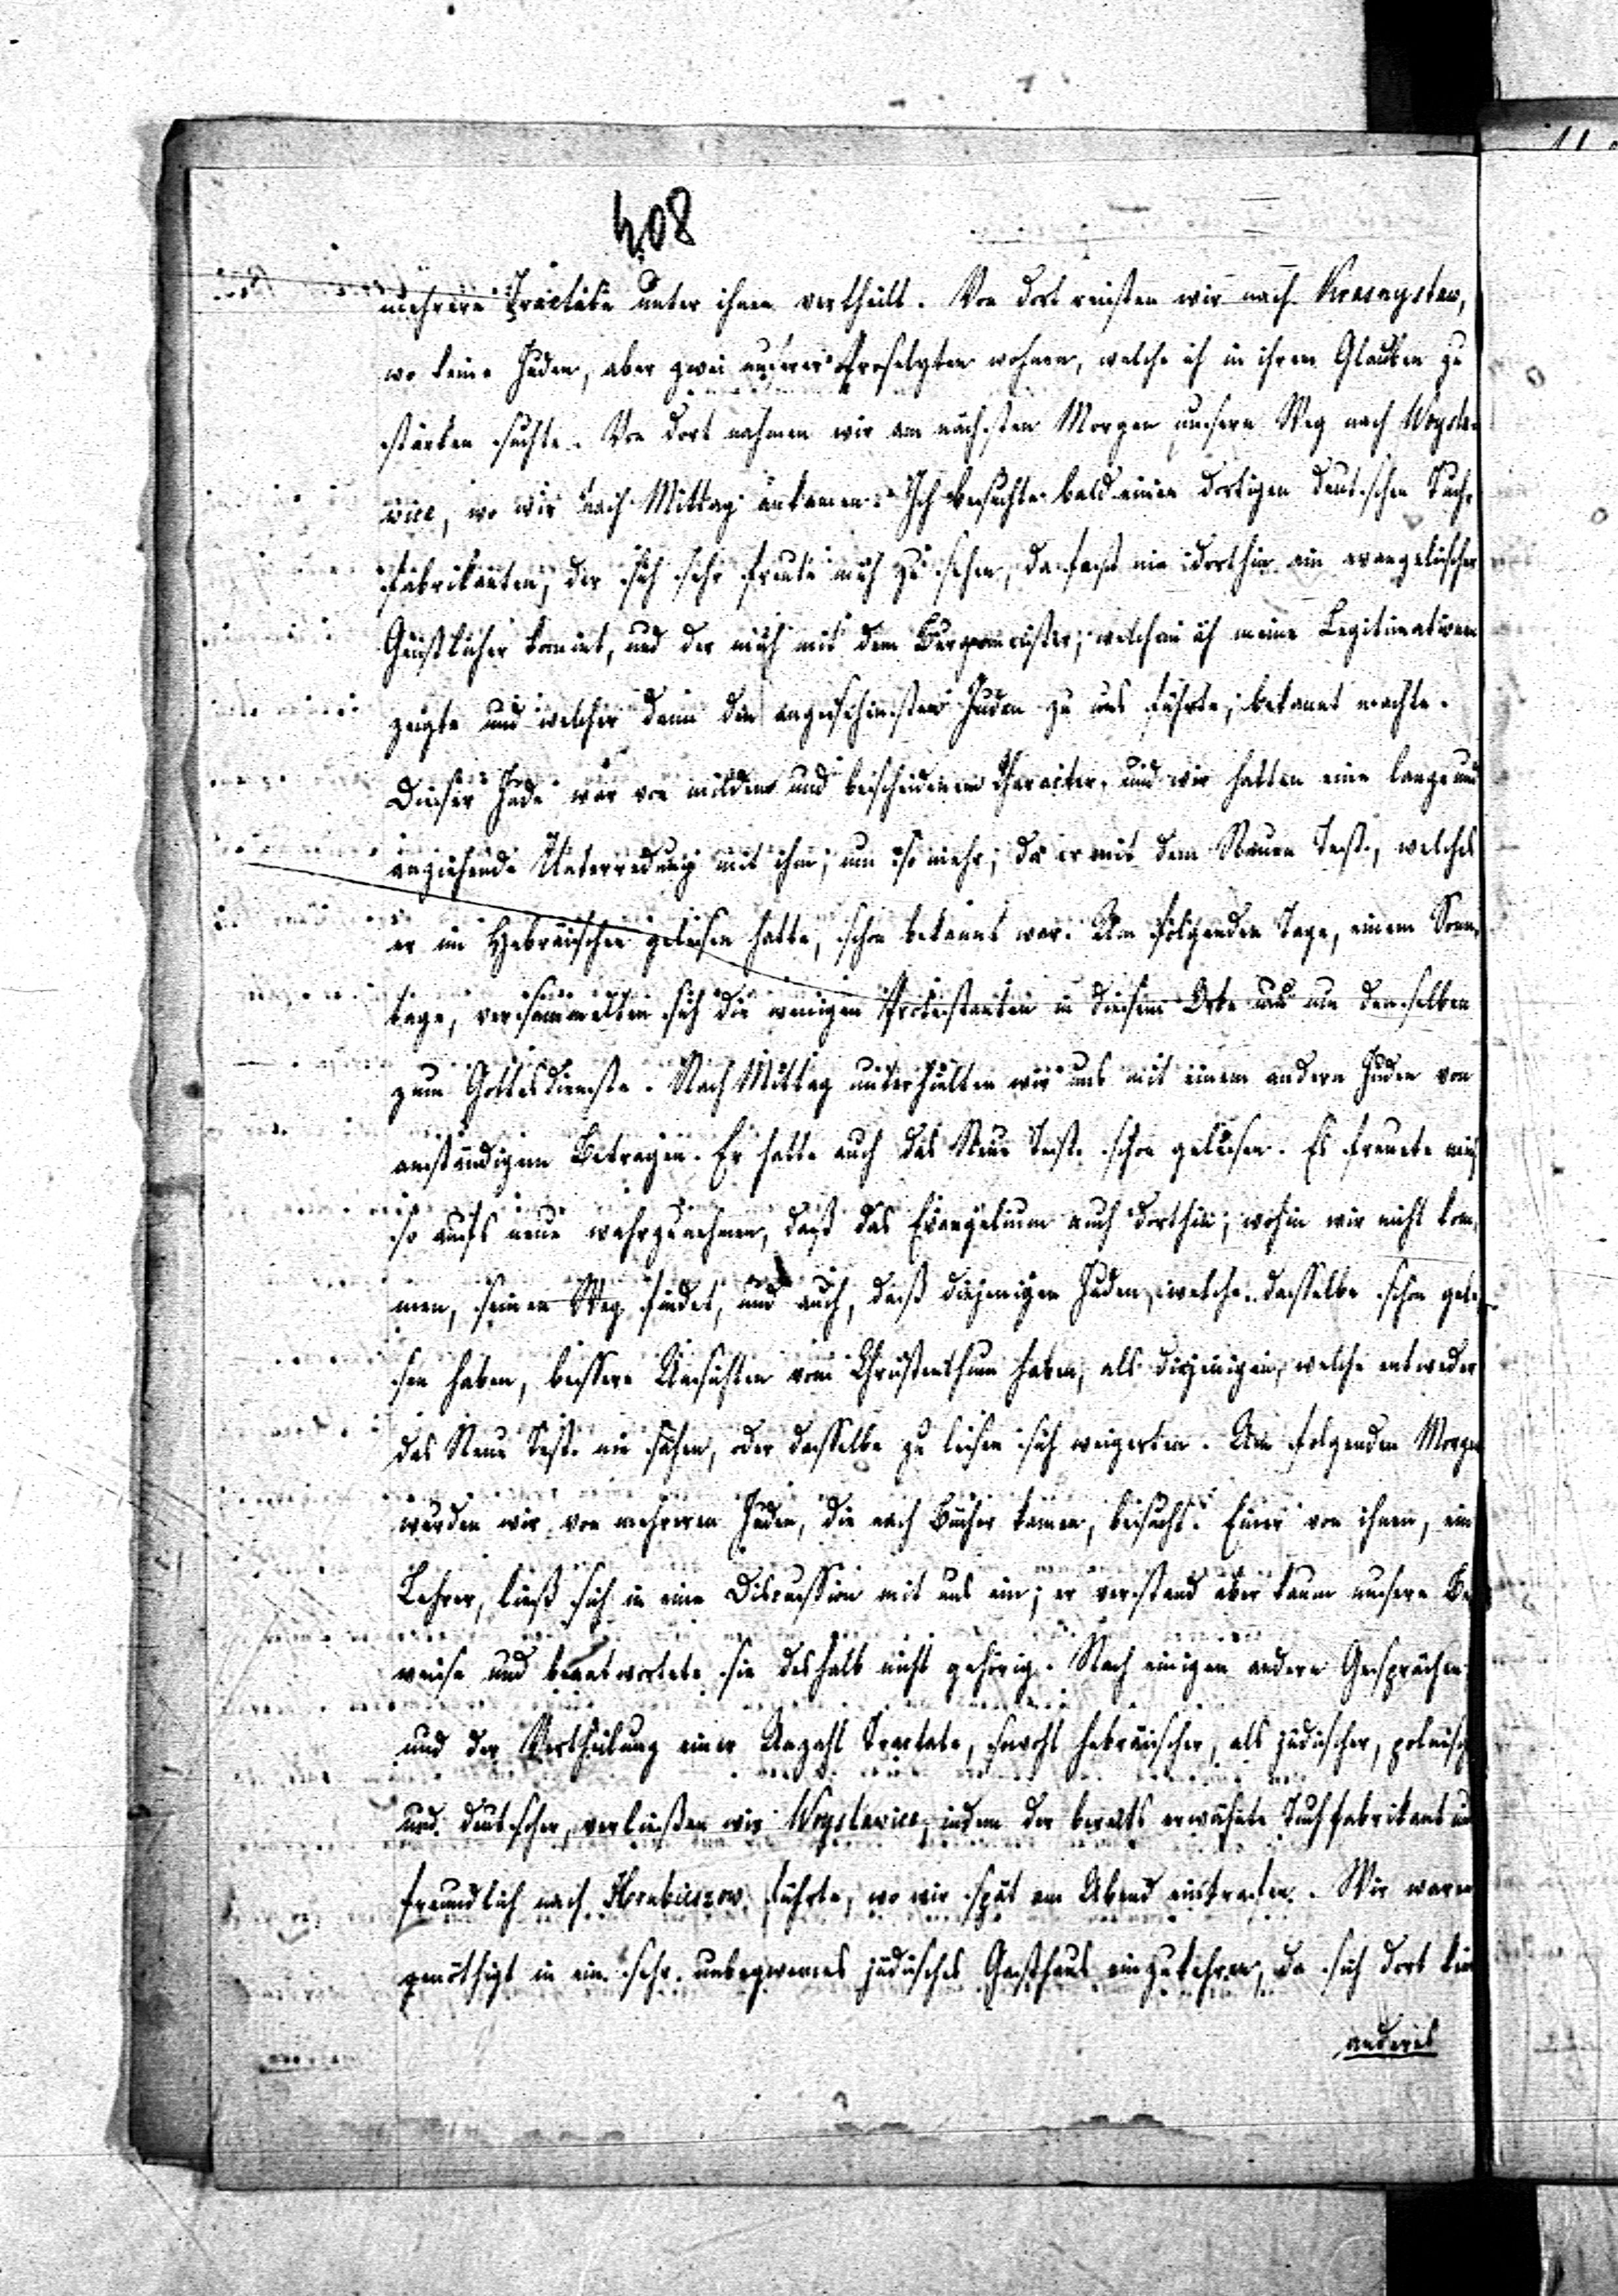 408
mehrere Tractate unter ihnen vertheilt. Von dort reisten wir nach Krasnystaw,
wo keine Juden, aber zwei unserer Proselyten wohnen, welche ich in ihrem Glauben zu
stärken suchte. Von dort nahmen wir am nächsten Morgen unsern Weg nach Woysla-
wice, wo wir nach Mittag ankamen. Ich besuchte bald einen dortigen deutschen Tuch-
fabrikanten, der sich sehr freute mich zu sehen, da fast nie dorthin ein evangelischer
Geistlicher kommt, und der mich mit dem Burgermeister, welchem ich meine Legitimationen
zeigte und welcher dann den angesehensten Juden zu uns führte, bekannt machte.
Dieser Jude war von mildem und bescheidenem Character, und wir hatten eine lange und
anziehende Unterredung mit ihm, um so mehr, da er mit dem Neuen Test., welches
er im Hebräischen gelesen hatte, schon bekannt war. Am folgenden Tage, einem Sonn-
tage, versammelten sich die wenigen Protestanten in diesem Orte und um denselben
zum Gottesdienste. Nach Mittag unterhielten wir uns mit einem andern Juden von
anständigem Betragen. Er hatte auch das Neue Test. schon gelesen. Es freuete mich
so aufs neue wahrzunehmen, daß das Evangelium auch dorthin, wohin wir nicht kom-
men, seinen Weg findet, und auch, daß diejenigen Juden, welche dasselbe schon gele-
sen haben, bessere Ansichten vom Christenthum haben, als diejenigen, welche entweder
das Neue Test. nie sahen, oder dasselbe zu lesen sich weigerten. Am folgenden Morgen
wurden wir von mehreren Juden, die nach Bücher kamen, besucht. Einer von ihnen, ein
Lehrer, ließ sich in eine Discussion mit uns ein; er verstand aber kaum unsere Be-
weise und beantwortete sie deshalb nicht gehörig. Nach einigen andern Gesprächen
und der Vertheilung einer Anzahl Tractate, sowohl hebräischer, als jüdischer, polnisch
und deutscher, verließen wir Woyslawice, indem der bereits erwähnte Tuchfabrikant uns
freundlich nach Hrubieszow führte, wo wir spät am Abend eintrafen. Wir waren
genöthigt in ein sehr unbequemes jüdisches Gasthaus einzukehren, da sich dort kein
anderes